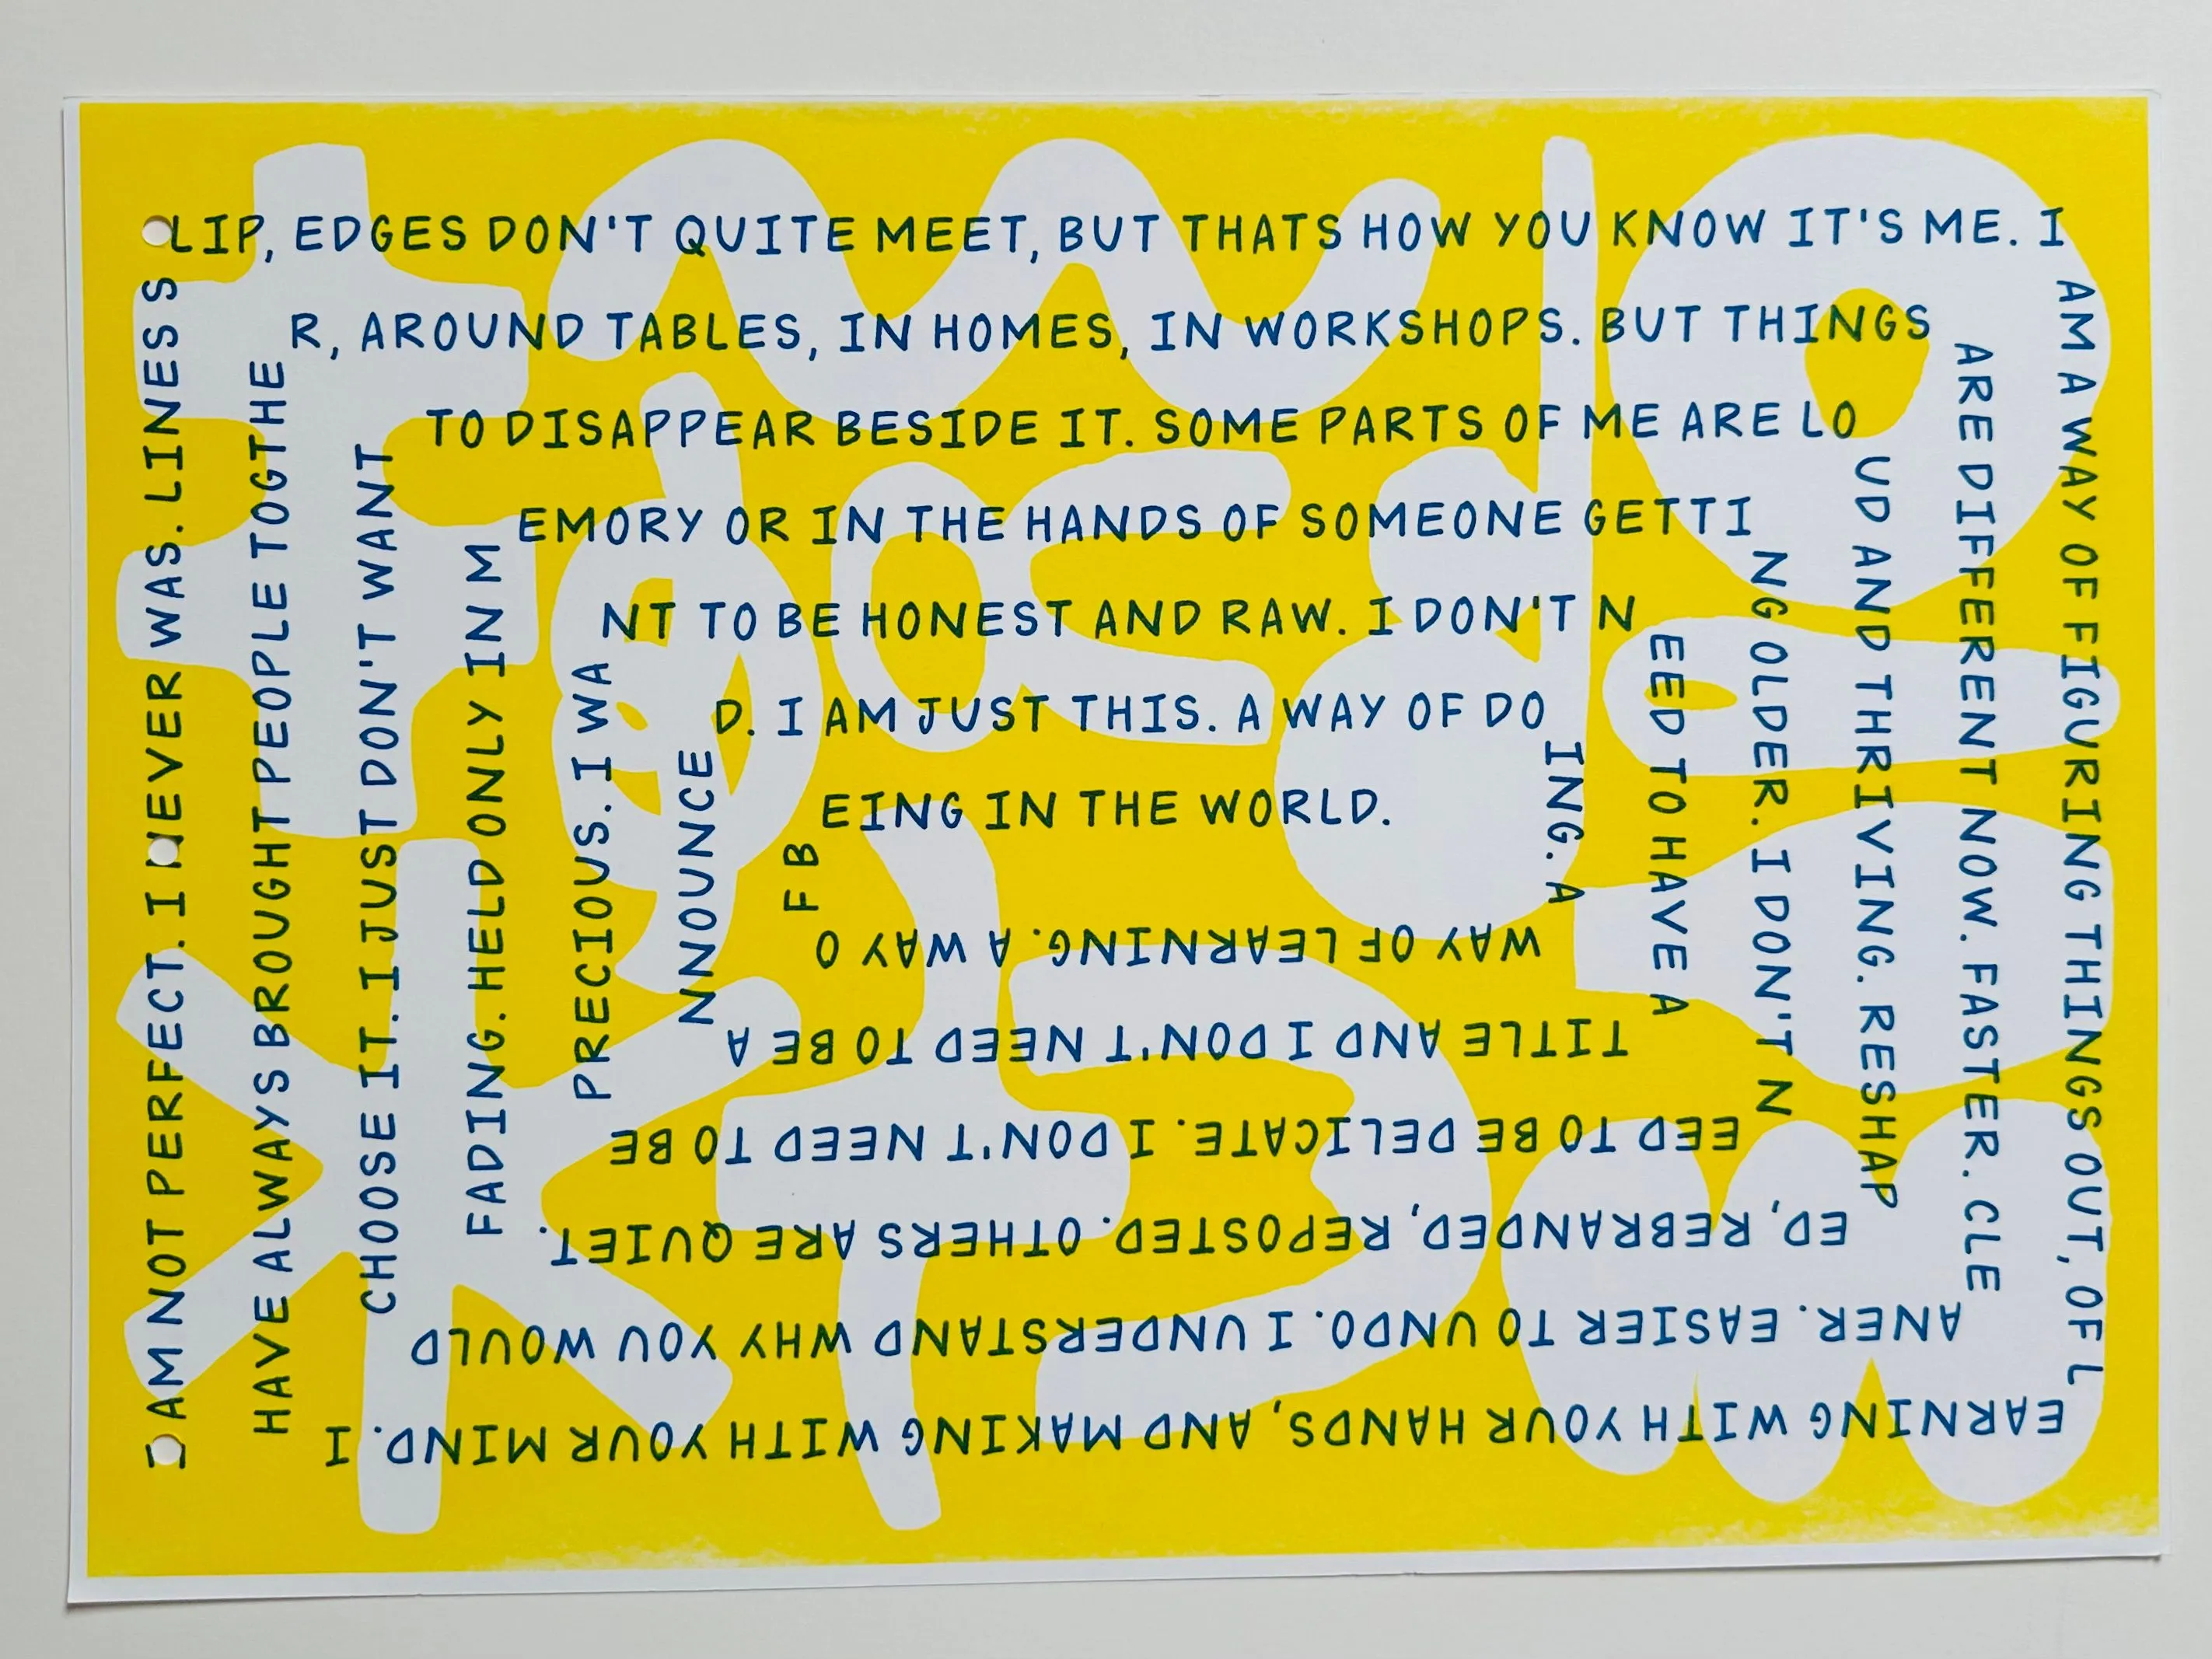 I AM NOT PERFECT. I NEVER WAS. LINES S
LIP, EDGES DON'T QUITE MEET, BUT THATS HOW YOU KNOW IT'S ME. I
AM A WAY OF FIGURING THINGS OUT, OF L
EARNING WITH YOUR HANDS, AND MAKING WITH YOUR MIND. I
HAVE ALWAYS BROUGHT PEOPLE TOGTHE
R, AROUND TABLES, IN HOMES, IN WORKSHOPS. BUT THINGS
ARE DIFFERENT NOW. FASTER. CLE
ANER. EASIER TO UNDO. I UNDERSTAND WHY YOU WOULD
CHOOSE IT. I JUST DON'T WANT
TO DISAPPEAR BESIDE IT. SOME PARTS OF ME ARE LO
UD AND THRIVING. RESHAP
ED, REBRANDED, REPOSTED. OTHERS ARE QUIET.
FADING. HELD ONLY IN M
EMORY OR IN THE HANDS OF SOMEONE GETTI
NG OLDER. I DON'T N
EED TO BE DELICATE. I DON'T NEED TO BE
PRECIOUS. I WA
NT TO BE HONEST AND RAW. I DON'T N
EED TO HAVE A
TITLE AND I DON'T NEED TO BE A
NNOUNCE
D. I AM JUST THIS. A WAY OF DO
ING. A
WAY OF LEARNING. A WAY O
F B
EING IN THE WORLD.